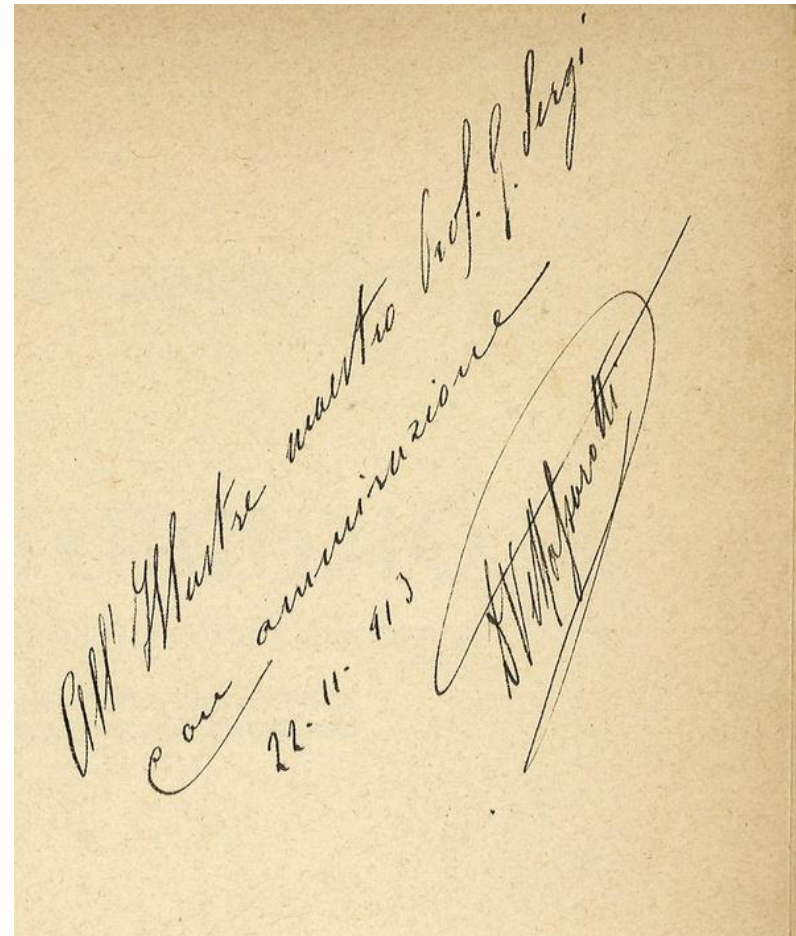 All' Illustre maestro Prof. G. Sergi
con ammirazione
22-11-913